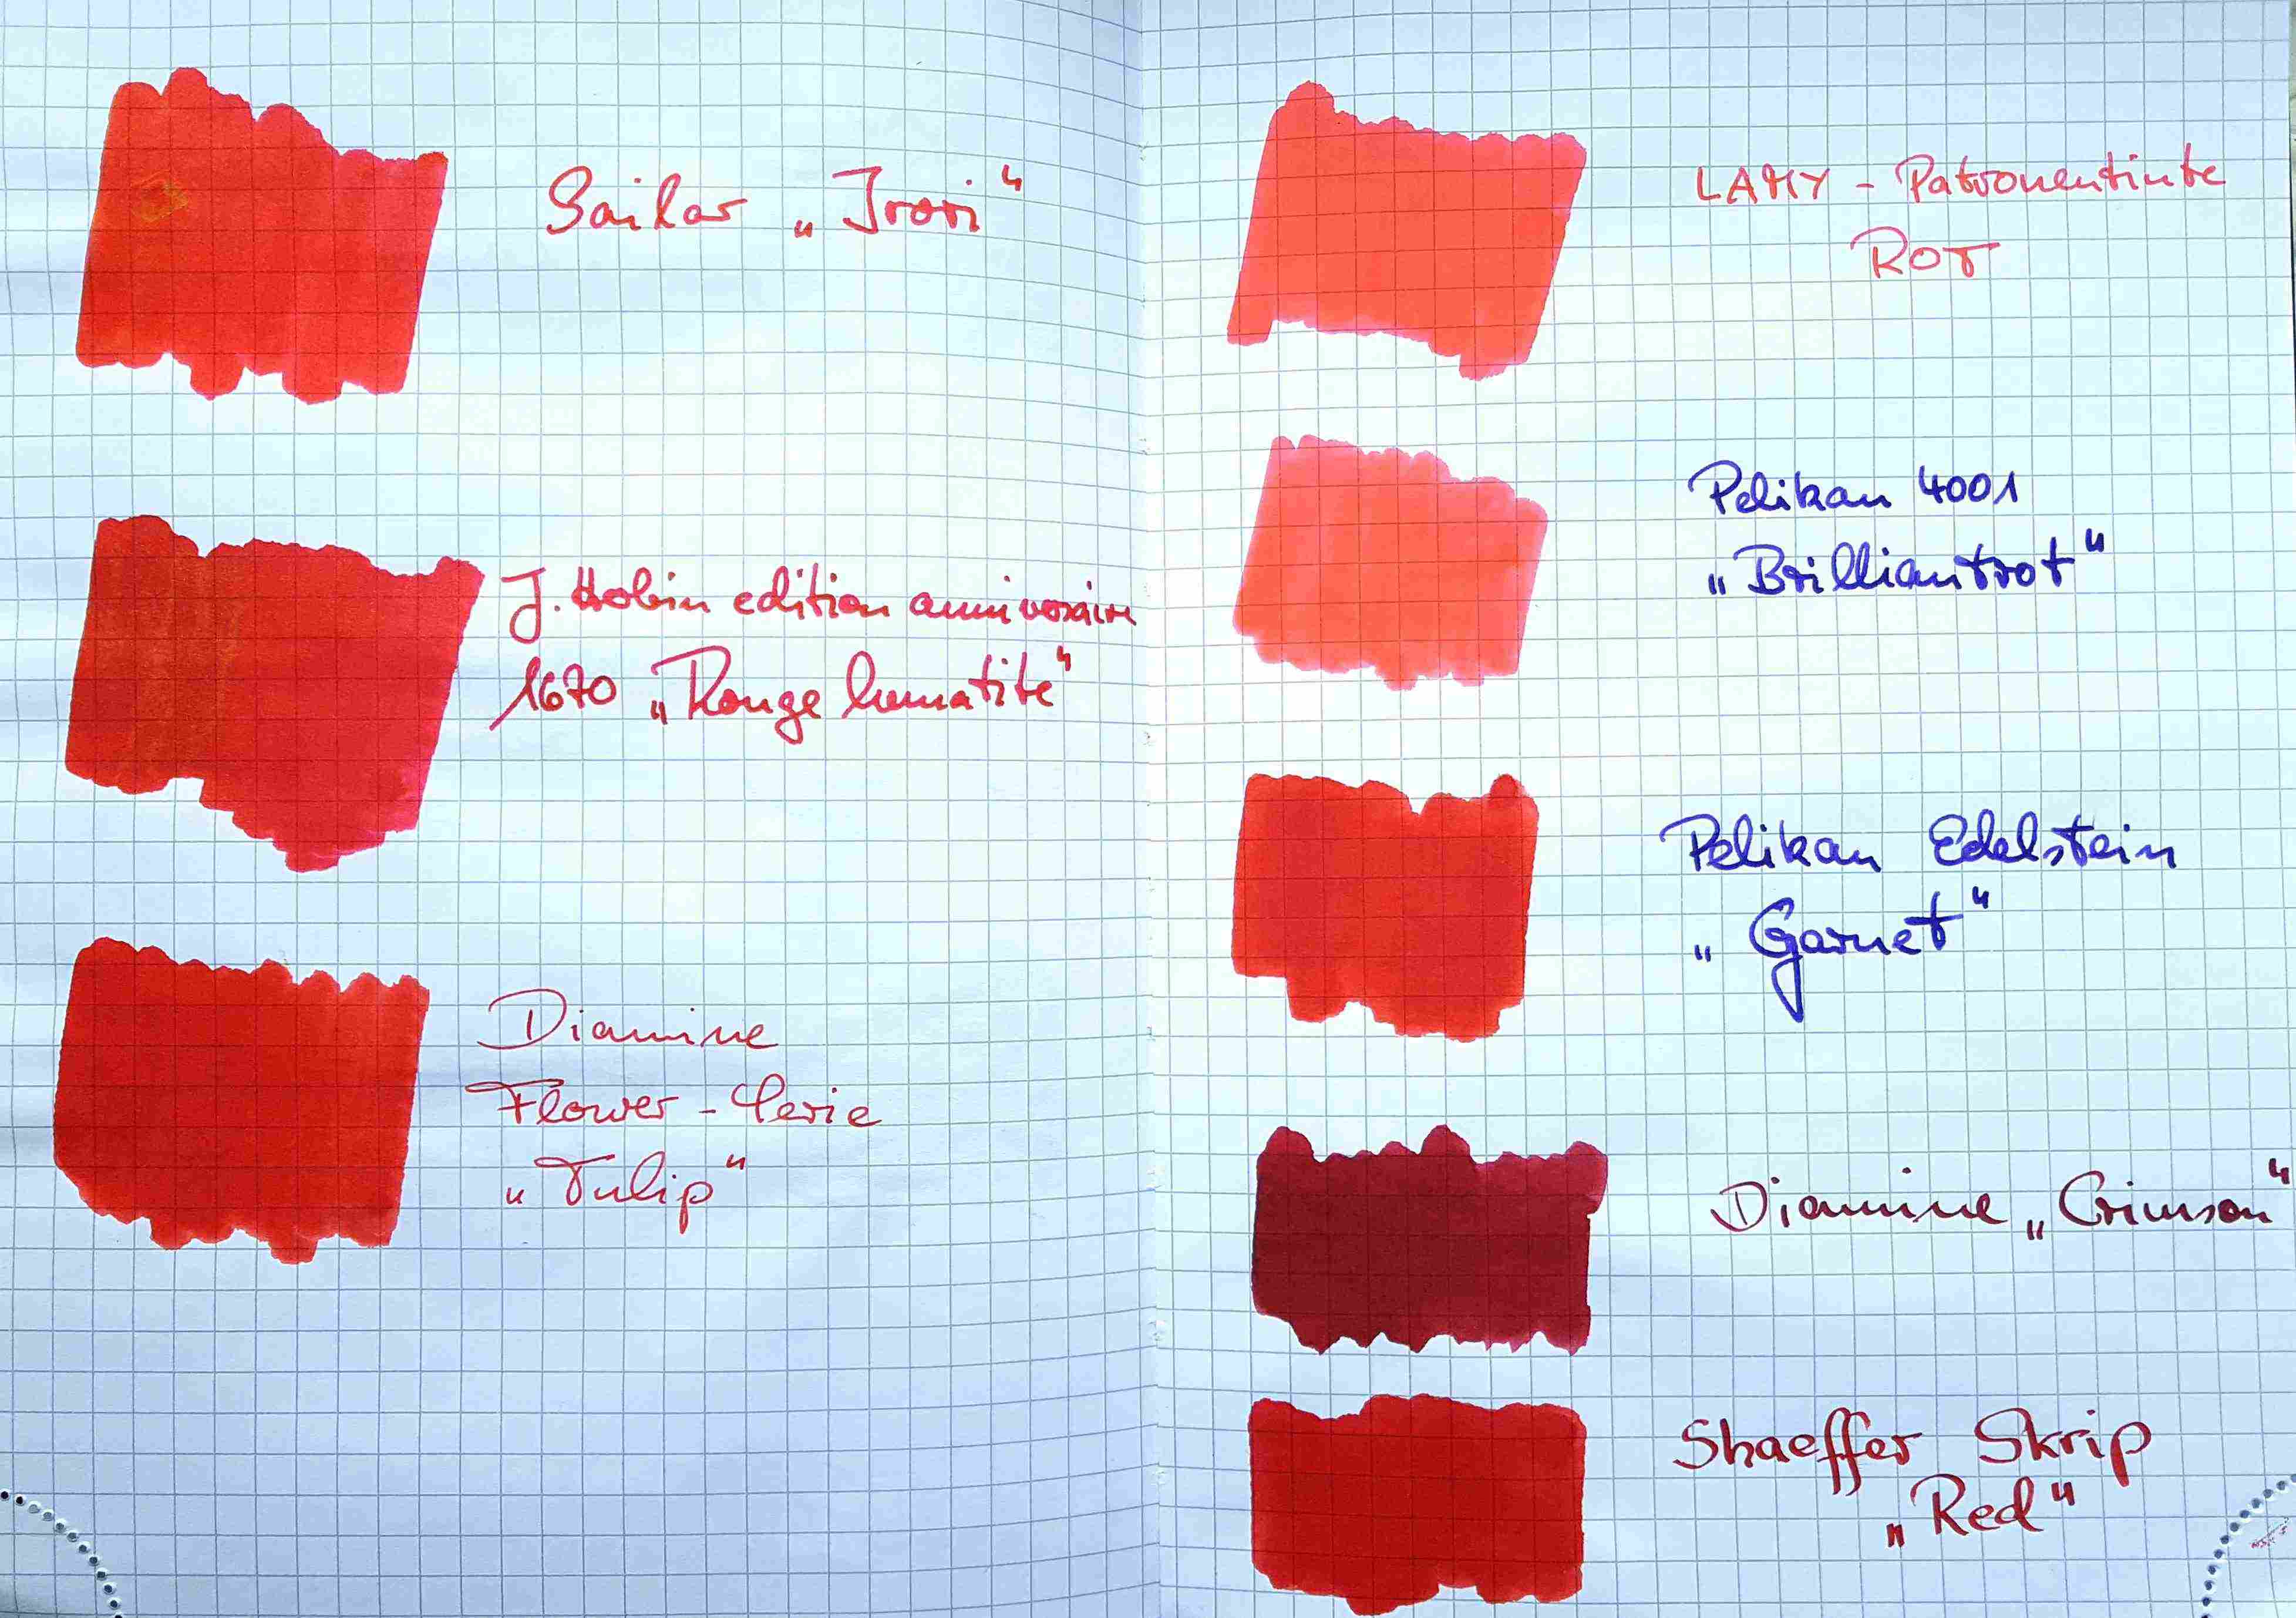 Sailor „Irori“
J. Herbin edition anniversaire
1670 „Rouge hematite“
Diamine
Flower-Serie
„Tulip“
LAMY - Patronentinte
ROT
Pelikan 4001
„Brilliantrot“
Pelikan Edelstein
„Garnet“
Diamine „Crimson“
Shaeffer Skrip
„Red“